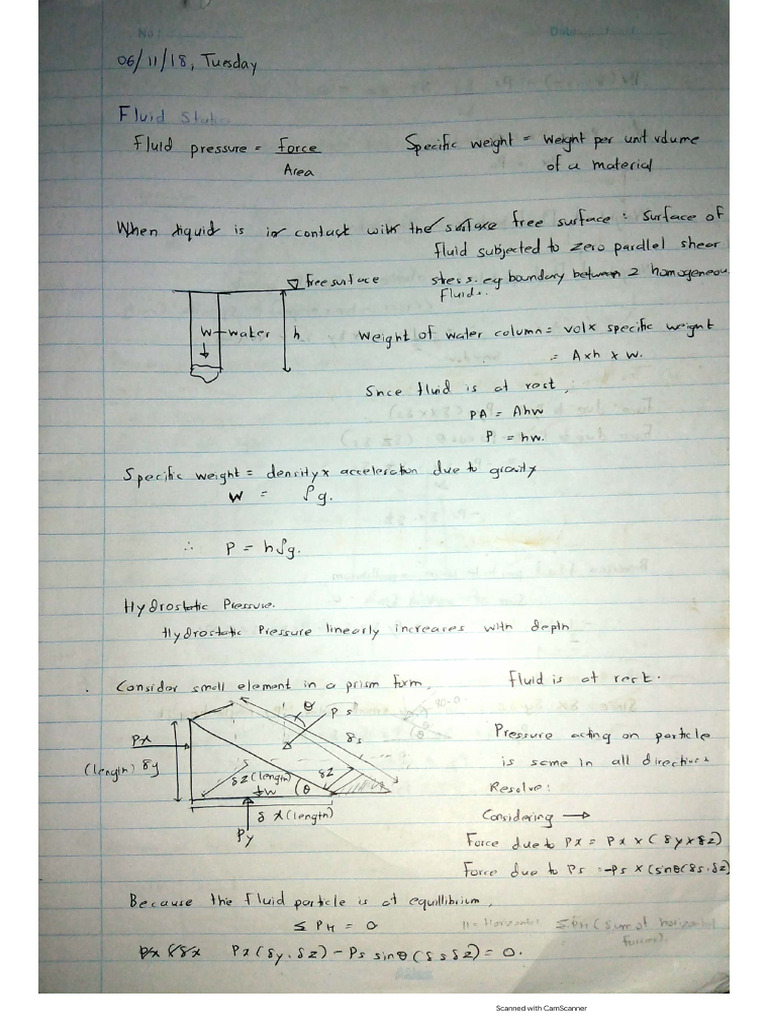 No:
Date
06/11/18, Tuesday
Fluid Static
Fluid pressure = Force
Area
Specific weight = Weight per unit volume
of a material
When liquid is in contact with the surface free surface : Surface of
fluid subjected to zero parallel shear
stress. eg boundary between 2 homogeneou
fluids.
Free surface
W water h
Weight of water column = vol x specific weight
= A x h x w.
Snce fluid is at rest,
PA = Ahw
P = hw.
Specific weight = density x acceleration due to gravity
W = ρg.
∴ P = hρg.
Hydrostatic Pressure.
Hydrostatic Pressure linearly increases with depth
Consider small element in a prism form,
Fluid is at rest.
θ Ps
Px
δs
(length) δy
δz (length) δz
W θ
δx (length)
Py
Pressure acting on particle
is same in all direction
Resolve:
Considering →
Force due to Px = Px x (δy x δz)
Force due to Ps = -Ps x (sinθ(δs.δz)
Because the fluid particle is at equillibrium,
≤ PH = 0
H = Horizontal
≤PH (Sum of horizontal
forces)
Px(δy.δz) - Ps sinθ(δsδz) = 0.
Scanned with CamScanner